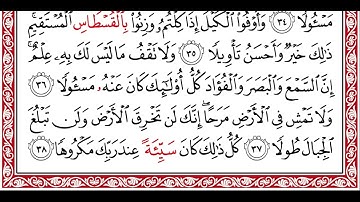 مَسْـُٔولًا ٣٤ وَأَوْفُوا۟ ٱلْكَيْلَ إِذَا كِلْتُمْ وَزِنُوا۟ بِٱلْقُسْطَاسِ ٱلْمُسْتَقِيمِ
ذَٰلِكَ خَيْرٌ وَأَحْسَنُ تَأْوِيلًا ٣٥ وَلَا تَقْفُ مَا لَيْسَ لَكَ بِهِۦ عِلْمٌ
إِنَّ ٱلسَّمْعَ وَٱلْبَصَرَ وَٱلْفُؤَادَ كُلُّ أُو۟لَٰٓئِكَ كَانَ عَنْهُ مَسْـُٔولًا ٣٦
وَلَا تَمْشِ فِى ٱلْأَرْضِ مَرَحًا إِنَّكَ لَن تَخْرِقَ ٱلْأَرْضَ وَلَن تَبْلُغَ
ٱلْجِبَالَ طُولًا ٣٧ كُلُّ ذَٰلِكَ كَانَ سَيِّئَةً عِندَ رَبِّكَ مَكْرُوهًا ٣٨